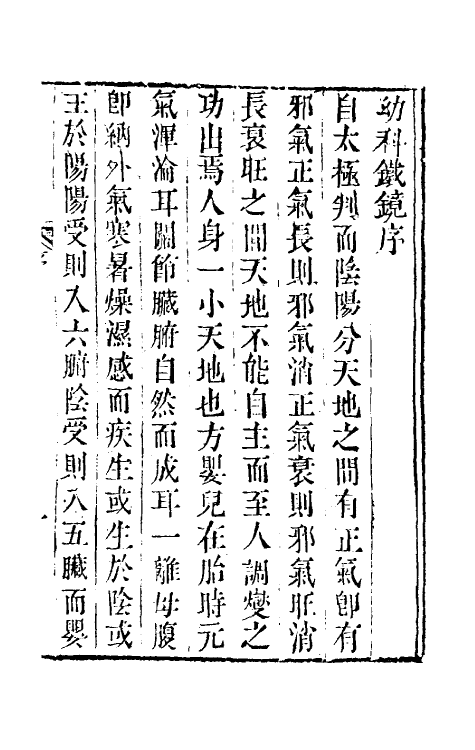 幼科鐵鏡序
自太極判而陰陽分天地之間有正氣卽有
邪氣正氣長則邪氣消正氣衰則邪氣旺消
長衰旺之間天地不能自主而至人調燮之
功出焉人身一小天地也方嬰兒在胎時元
氣渾淪耳關節臟腑自然而成耳一離母腹
卽納外氣寒暑燥濕感而疾生或生於陰或
主於陽陽受則入六腑陰受則入五臟而嬰